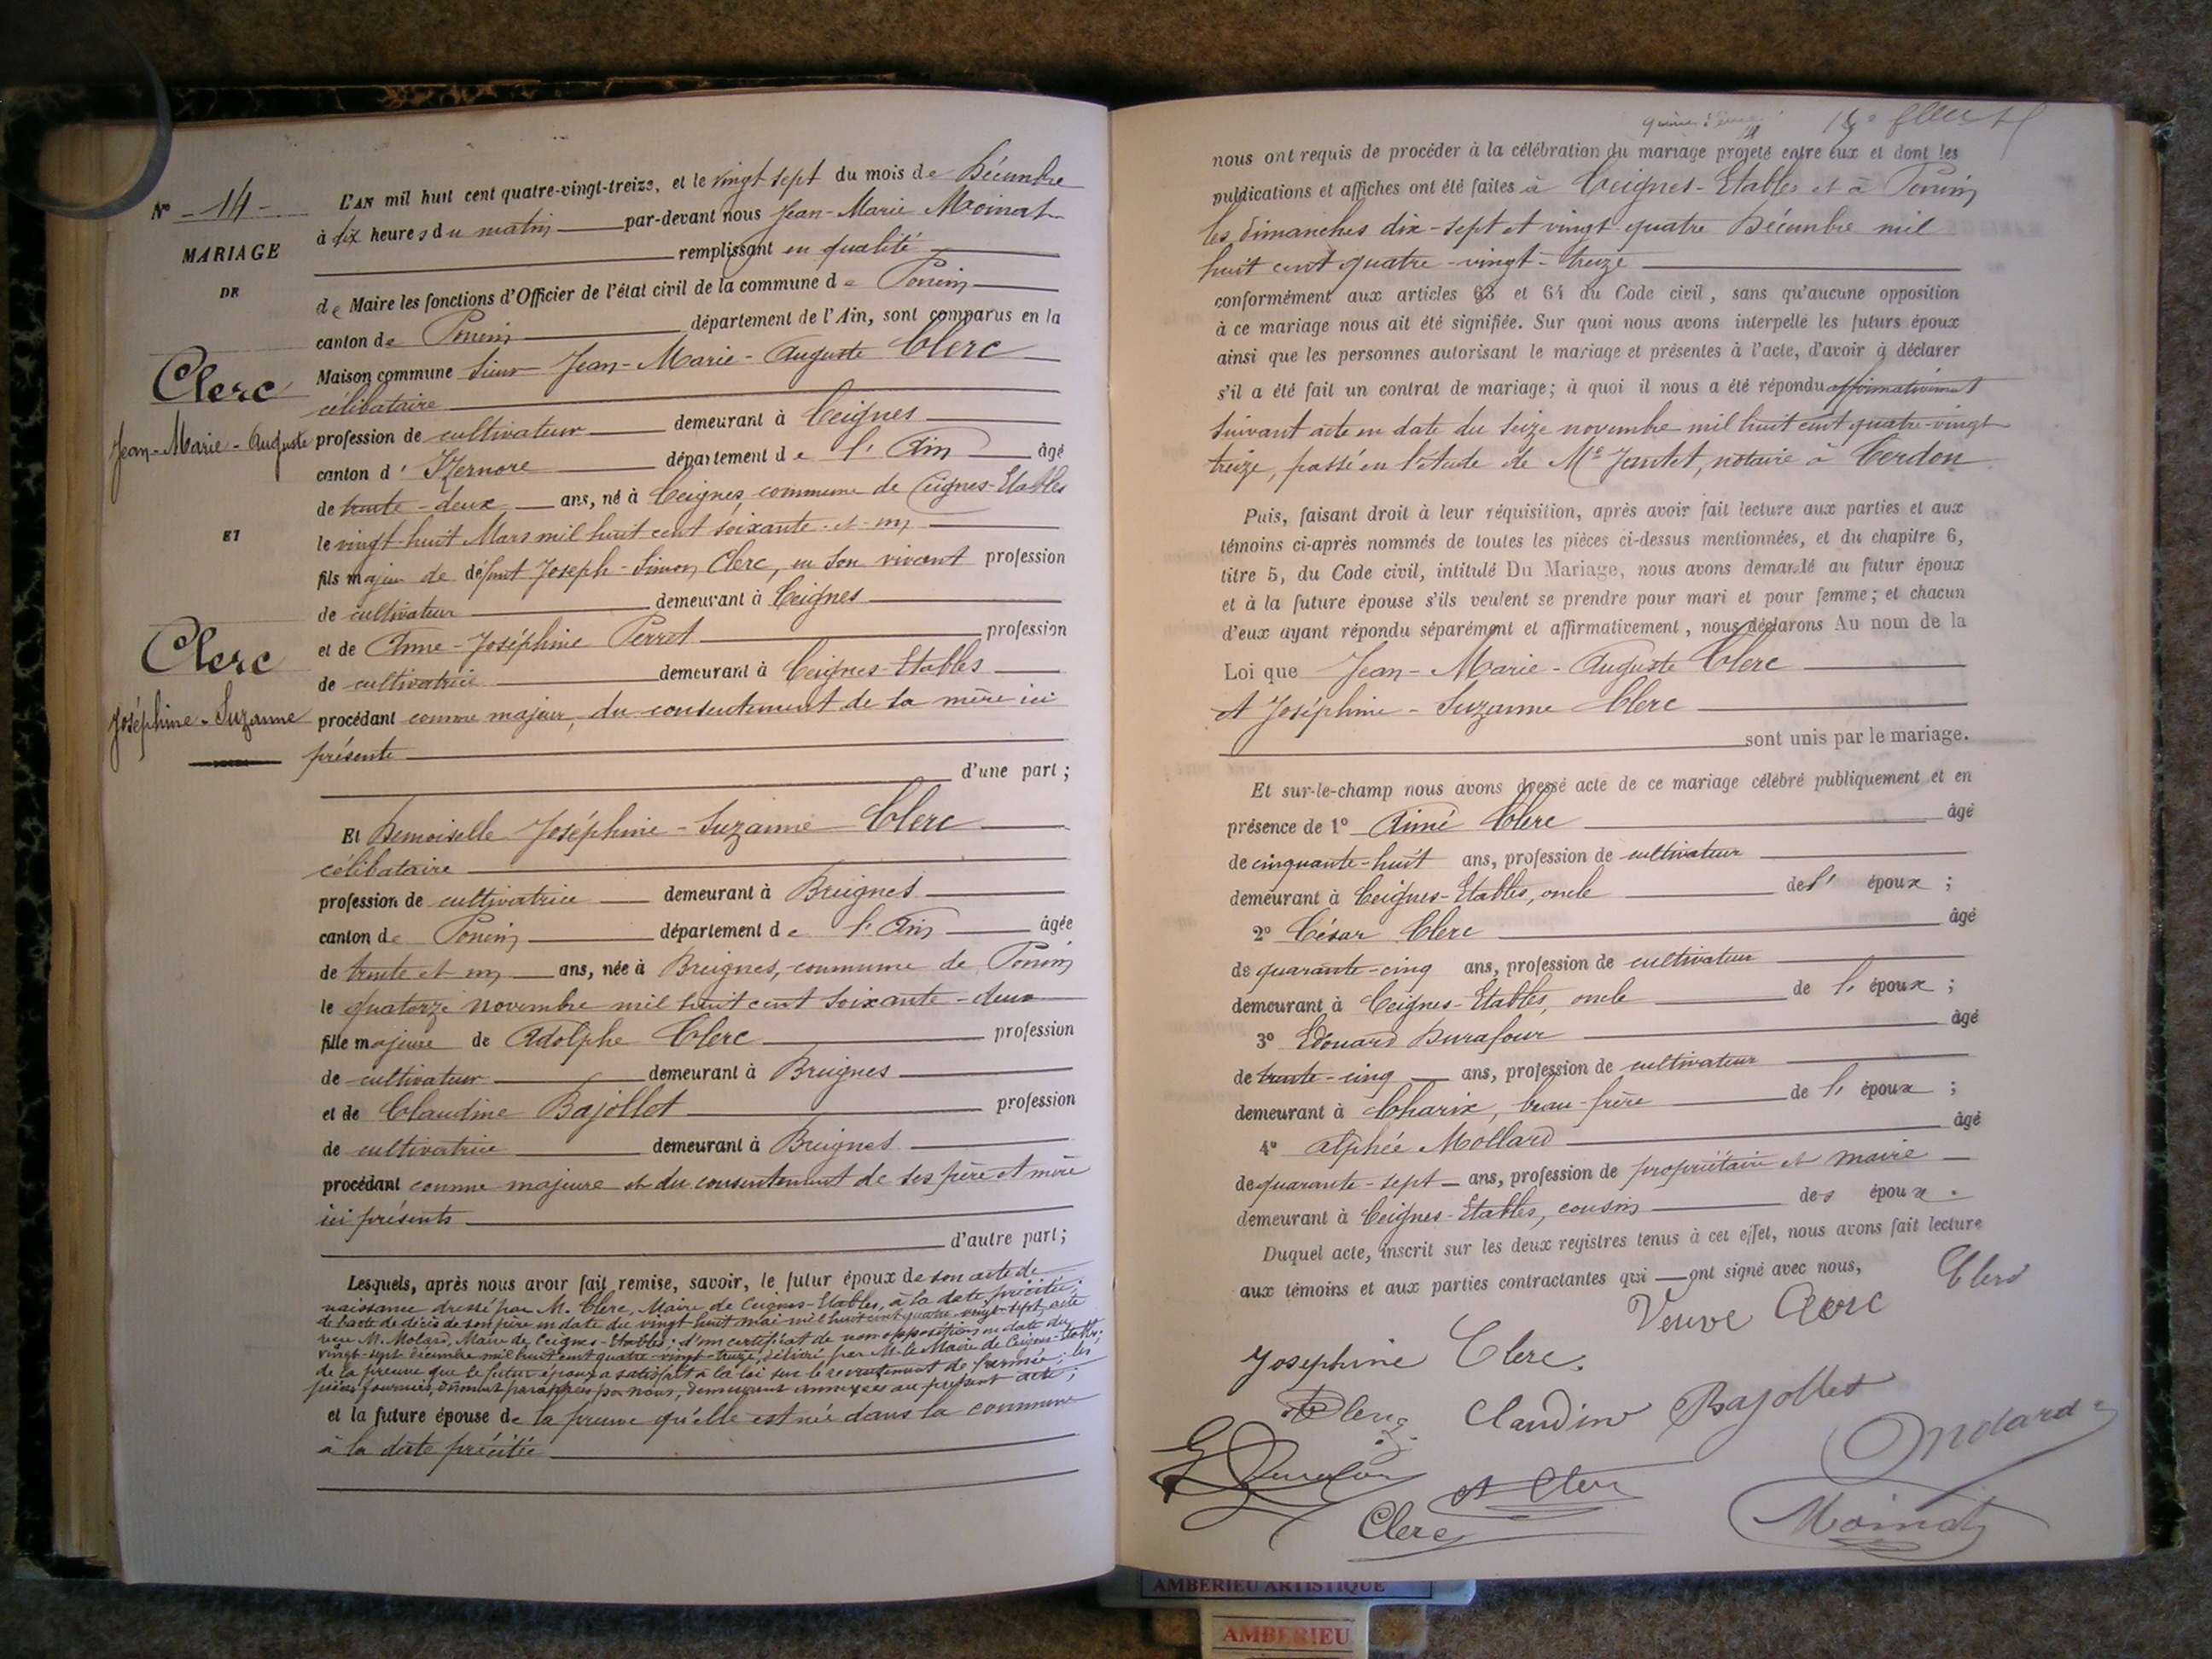 N° - 14 -
MARIAGE
DE
Clerc
Jean-Marie-Auguste
ET
Clerc
Joséphine-Suzanne
L'AN mil huit cent quatre-vingt-treize, et le vingt-sept du mois de Décembre
à dix heures du matin par-devant nous Jean-Marie Moinat
remplissant en qualité
de Maire les fonctions d'Officier de l'état civil de la commune de Poncin
canton de Poncin département de l'Ain, sont comparus en la
Maison commune Sieur Jean-Marie-Auguste Clerc
célibataire
profession de cultivateur demeurant à Ceignes
canton d'Izernore département de l'Ain âgé
de trente-deux ans, né à Ceignes, commune de Ceignes-Etables
le vingt-huit Mars mil huit cent soixante-et-un
fils majeur de défunt Joseph-Simon Clerc, en son vivant profession
de cultivateur demeurant à Ceignes
et de Anne-Joséphine Perret profession
de cultivatrice demeurant à Ceignes-Etables
procédant comme majeur, du consentement de sa mère ici
présente
d'une part ;
Et Demoiselle Joséphine-Suzanne Clerc
célibataire
profession de cultivatrice demeurant à Breignes
canton de Poncin département de l'Ain âgée
de trente et un ans, née à Breignes, commune de Poncin
le quatorze novembre mil huit cent soixante-deux
fille majeure de Adolphe Clerc profession
de cultivateur demeurant à Breignes
et de Claudine Bajollet profession
de cultivatrice demeurant à Breignes
procédant comme majeure et du consentement de ses père et mère
ici présents
d'autre part ;
Lesquels, après nous avoir fait remise, savoir, le futur époux de son acte de
naissance dressé par M. Clerc, Maire de Ceignes-Etables, à la date précitée ;
de l'acte de décès de son père en date du vingt-huit mai mil huit cent quatre-vingt-sept, acte
reçu M. Molard, Maire de Ceignes-Etables ; d'un certificat de non opposition en date du
vingt-sept décembre mil huit cent quatre-vingt-treize, délivré par M. le Maire de Ceignes-Etables ;
de la preuve que le futur époux a satisfait à la loi sur le recrutement de l'armée ; les
pièces fournies, dûment paraphées par nous, demeurent annexées au présent acte ;
et la future épouse de la preuve qu'elle est née dans la commune
à la date précitée
nous ont requis de procéder à la célébration du mariage projeté entre eux et dont les
publications et affiches ont été faites à Ceignes-Etables et à Poncin
les dimanches dix-sept et vingt-quatre Décembre mil
huit cent quatre-vingt-treize
conformément aux articles 63 et 64 du Code civil, sans qu'aucune opposition
à ce mariage nous ait été signifiée. Sur quoi nous avons interpellé les futurs époux
ainsi que les personnes autorisant le mariage et présentes à l'acte, d'avoir à déclarer
s'il a été fait un contrat de mariage ; à quoi il nous a été répondu affirmativement
suivant acte en date du seize novembre mil huit cent quatre-vingt
treize, passé en l'étude de Me Jantet, notaire à Cerdon
Puis, faisant droit à leur réquisition, après avoir fait lecture aux parties et aux
témoins ci-après nommés de toutes les pièces ci-dessus mentionnées, et du chapitre 6,
titre 5, du Code civil, intitulé Du Mariage, nous avons demandé au futur époux
et à la future épouse s'ils veulent se prendre pour mari et pour femme ; et chacun
d'eux ayant répondu séparément et affirmativement, nous déclarons Au nom de la
Loi que Jean-Marie-Auguste Clerc
et Joséphine-Suzanne Clerc
sont unis par le mariage.
Et sur-le-champ nous avons dressé acte de ce mariage célébré publiquement et en
présence de 1° Aimé Clerc âgé
de cinquante-huit ans, profession de cultivateur
demeurant à Ceignes-Etables, oncle de l'époux ;
2° César Clerc âgé
de quarante-cinq ans, profession de cultivateur
demeurant à Ceignes-Etables, oncle de l'époux ;
3° Edouard Durafour âgé
de trente-cinq ans, profession de cultivateur
demeurant à Charix, beau-frère de l'époux ;
4° Alphée Mollard âgé
de quarante-sept ans, profession de propriétaire et maire
demeurant à Ceignes-Etables, cousin des époux.
Duquel acte, inscrit sur les deux registres tenus à cet effet, nous avons fait lecture
aux témoins et aux parties contractantes qui ont signé avec nous,
Clerc
Veuve Clerc
Josephine Clerc.
Clerc Claudine Bajollet
Molard
A Clerc
Clerc
Moinat
AMBERIEU ARTISTIQUE
AMBERIEU